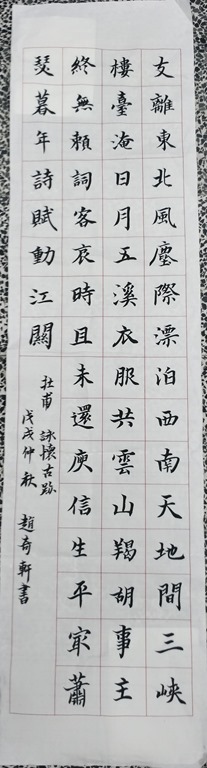 支離東北風塵際漂泊西南天地間三峽
樓臺淹日月五溪衣服共雲山羯胡事主
終無賴詞客哀時且未還庾信生平寂蕭
瑟暮年詩賦動江關
杜甫 詠懷古跡
戊戌仲秋 趙奇軒書